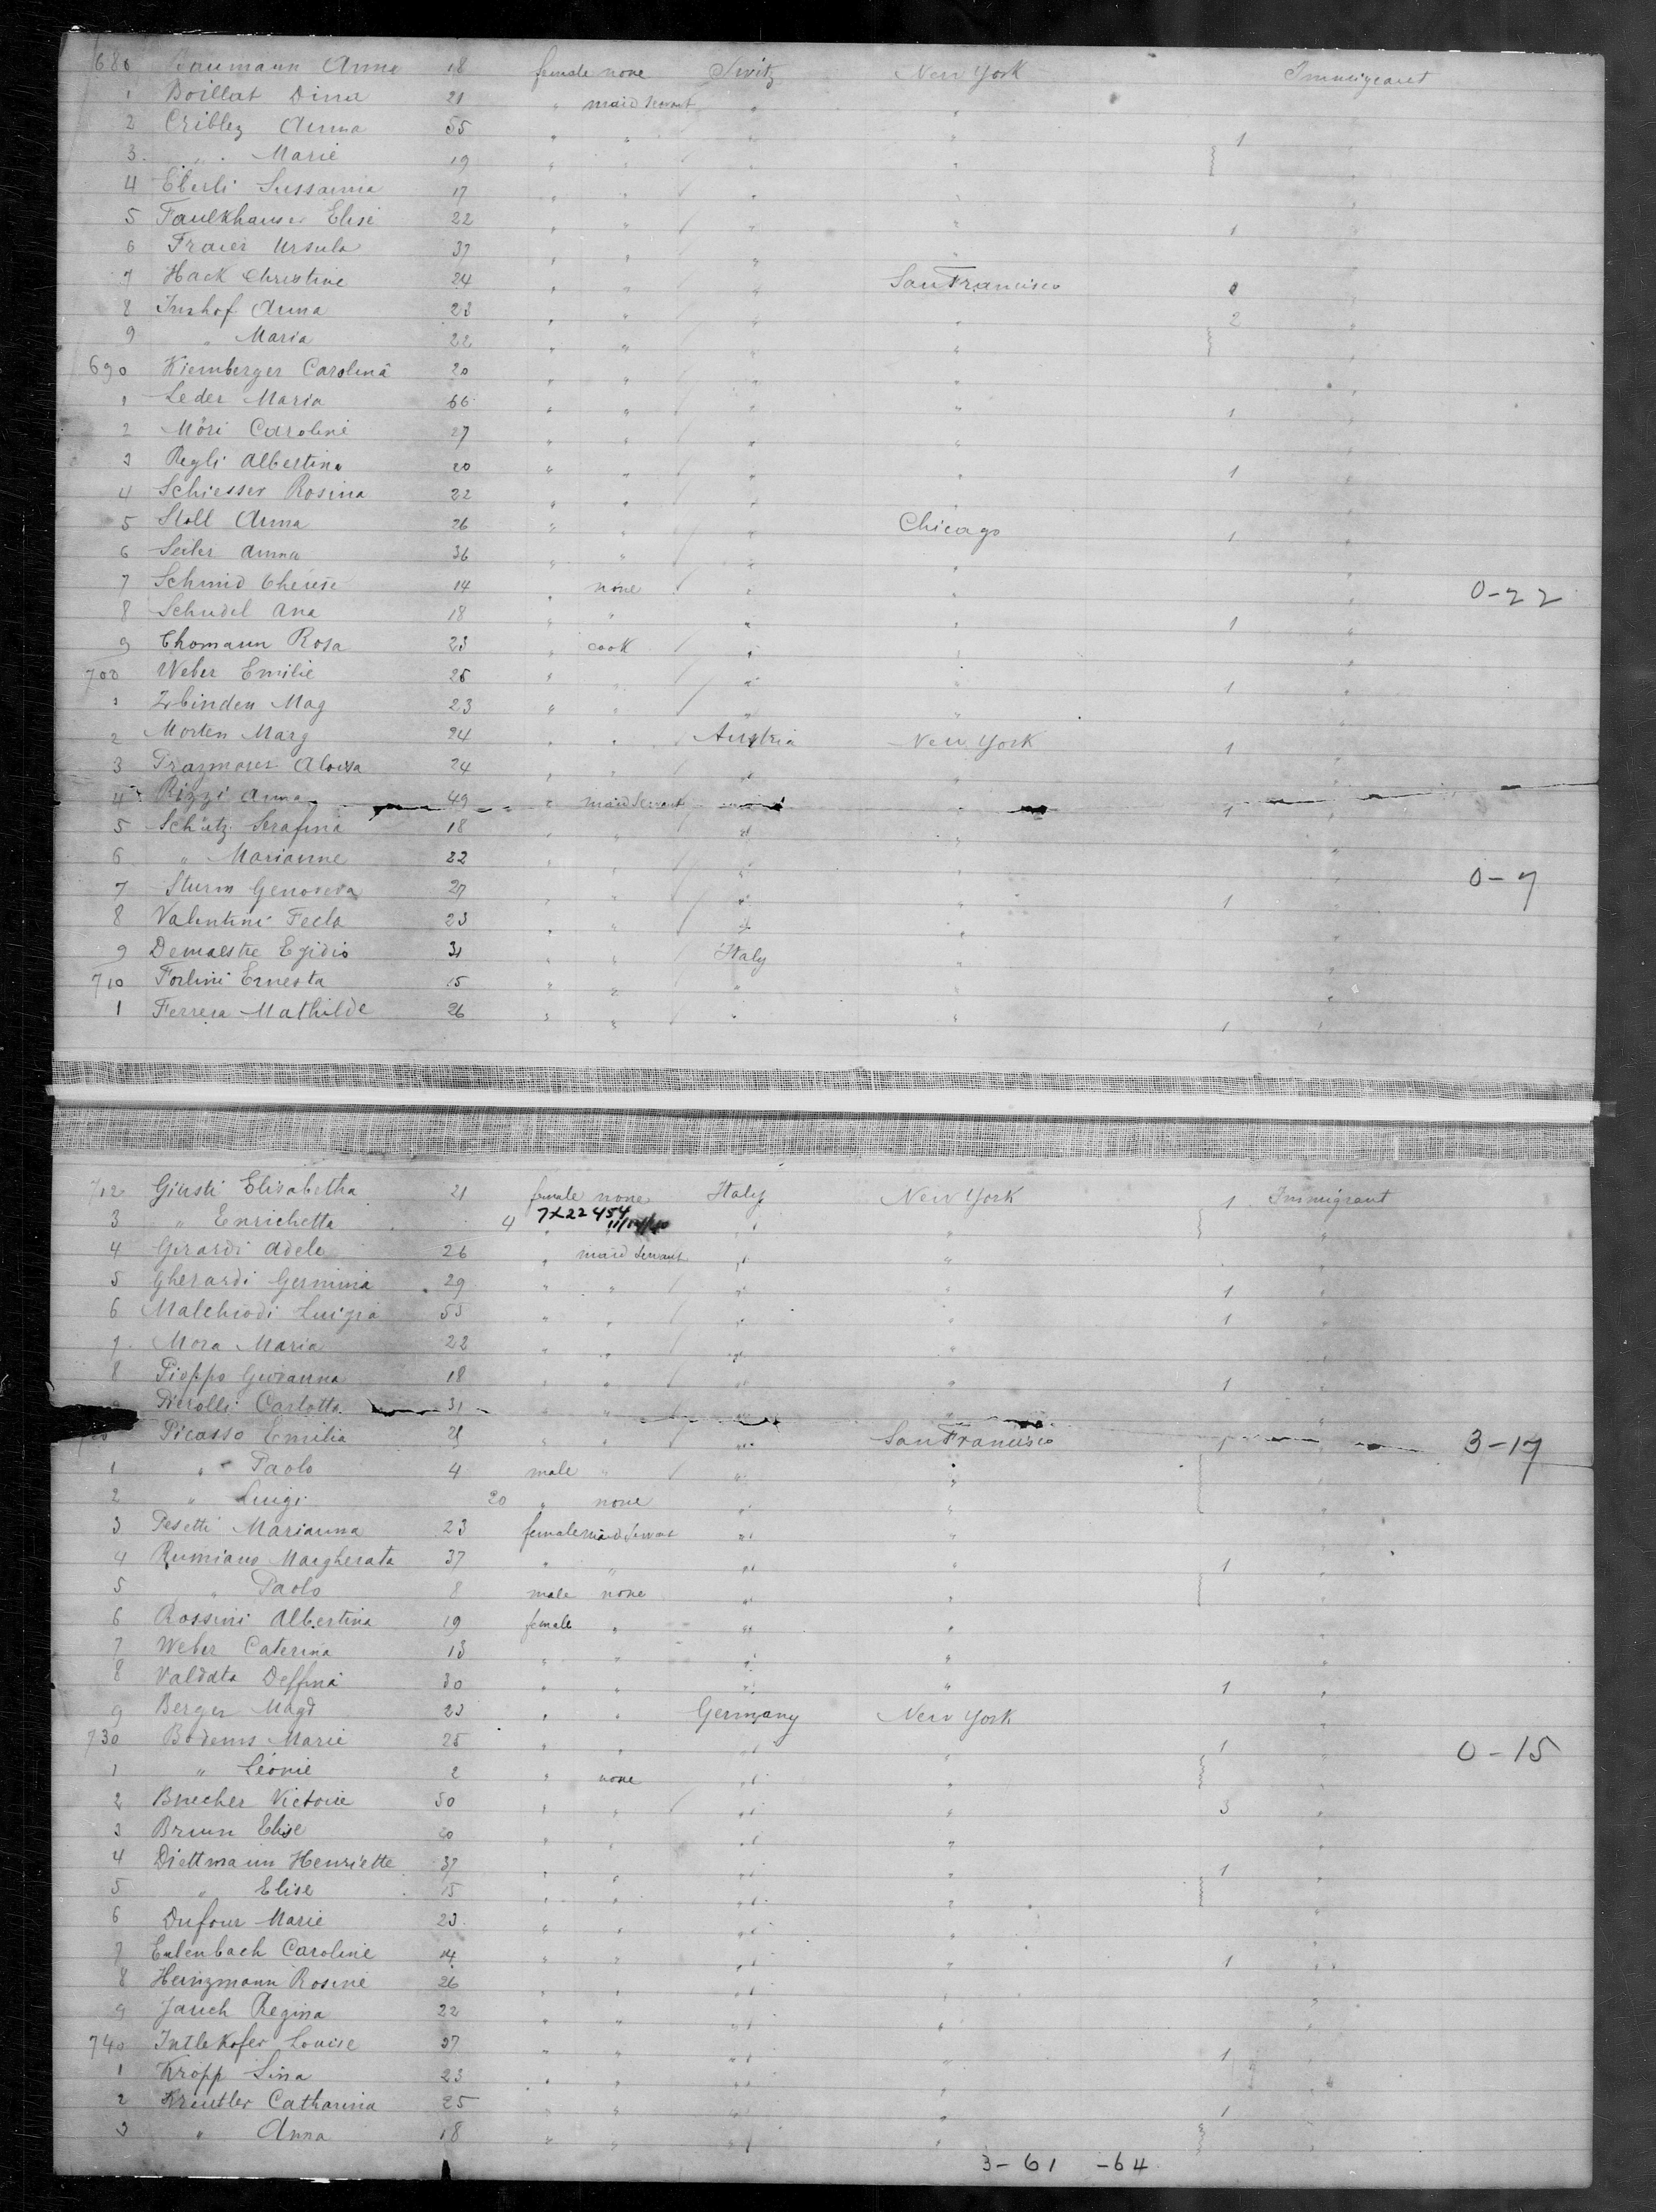 680 Baumann Anna 18 female none Switz New York Immigrant
1 Boillat Dina 21 " maid servant " "
2 Cribley Anna 55 " " " " 1 "
3 " Marie 19 " " " " "
4 Eberli Sussanna 17 " " " " "
5 Faulkhauser Elise 22 " " " " 1 "
6 Fraier Ursula 37 " " " " "
7 Hack Christine 24 " " " San Francisco "
8 Imhof Anna 23 " " " " 2 "
9 " Maria 22 " " " " "
690 Kiemberger Carolina 20 " " " " "
1 Leder Maria 66 " " " " 1 "
2 Möri Caroline 27 " " " " "
3 Regli Albertina 20 " " " " 1 "
4 Schiesser Rosina 22 " " " " "
5 Stoll Anna 26 " " " Chicago 1 "
6 Seiler Anna 36 " " " " "
7 Schmid 14 " none " " " 0-22
8 Schudel Ana 18 " " " " 1 "
9 Thomann Rosa 23 " cook " " "
700 Weber Emilie 25 " " " " 1 "
1 Zbinden Mag 23 " " " " "
2 Morten Marg 24 " " Austria New York 1 "
3 Aloisa 24 " " " " "
4 Rizzi Anna 49 " maid servant " " 1 "
5 Schütz Serafina 18 " " " " "
6 " Marianne 22 " " " " "
7 Sturm Genoveva 27 " " " " 1 " 0-7
8 Valentini Tecla 23 " " " " "
9 Demaestre Egidio 31 " " Italy " "
710 Forlini Ernesta 15 " " " " "
1 Ferrera Mathilde 26 " " " " 1 "
712 Giusti Elisabetha 21 female none Italy New York 1 Immigrant
3 " Enrichetta 4 7X22454 " " " "
4 Girardi Adele 26 " maid servant " " "
5 Gherardi Germinia 29 " " " " 1 "
6 Malchiodi Luigia 53 " " " " 1 "
7 Mora Maria 22 " " " " "
8 Pioppo Giovanna 18 " " " " 1 "
Pierolli Carlotta 31 " " " " "
Picasso Emilia " " " San Francisco 1 " 3-17
1 " Paolo 4 male " " " "
2 " Luigi 20 " none " " "
3 Pesetti Marianna 23 female maid servant " " "
4 Rumiano Margherata 37 " " " " 1 "
5 " Paolo 8 male none " " "
6 Rossini Albertina 19 female " " " "
7 Weber Caterina 13 " " " " "
8 Valdata Deffina 30 " " " " 1 "
9 Berger Magd 23 " " Germany New York "
730 Bodems Marie 25 " " " " 1 " 0-15
1 " Léonie 2 " none " "
2 Bucher Victoire 50 " " " " 3 "
3 Brunn Elise " " " "
4 Diettmann Henriette 37 " " " " 1 "
5 " Elise 15 " " " "
6 Dufour Marie 23 " " " " "
7 Eulenbach Caroline " " " " 1 "
8 Heinzmann Rosine 26 " " " " "
9 Jauch Regina 22 " " " " "
740 Intlekofer Louise 37 " " " " 1 "
1 Kropp Lina 23 " " " " "
2 Kreutler Catharina 25 " " " " 1 "
3 " Anna 18 " " " " "
3-61 -64